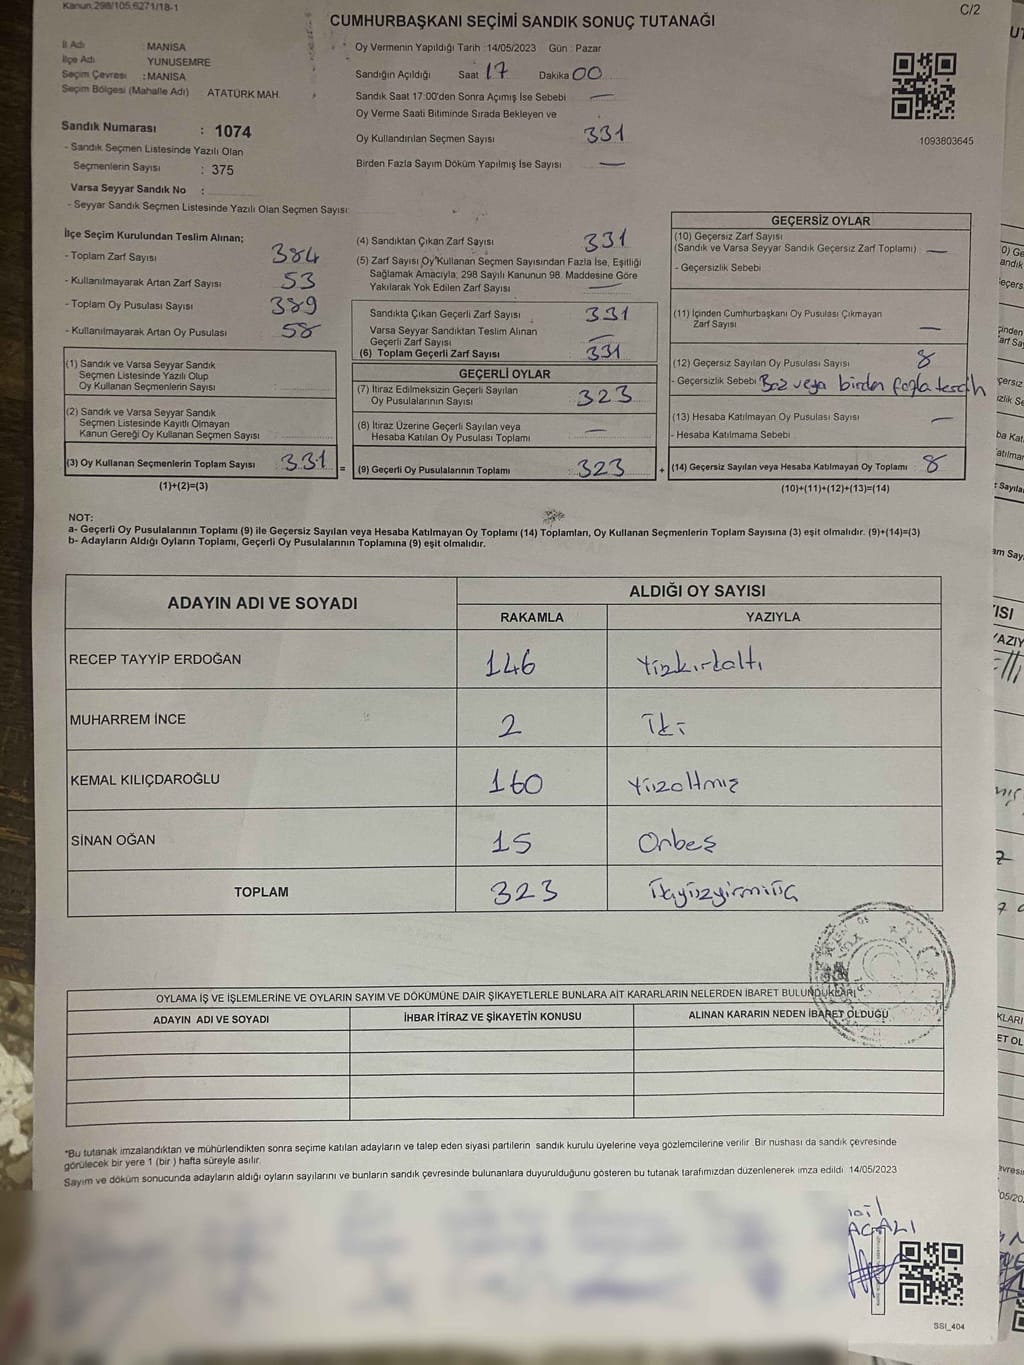 Kanun:298/105;6271/18-1
C/2
CUMHURBAŞKANI SEÇİMİ SANDIK SONUÇ TUTANAĞI
İl Adı : MANİSA
İlçe Adı YUNUSEMRE
Seçim Çevresi : MANİSA
Seçim Bölgesi (Mahalle Adı) ATATÜRK MAH.
Sandık Numarası : 1074
- Sandık Seçmen Listesinde Yazılı Olan
Seçmenlerin Sayısı : 375
Varsa Seyyar Sandık No :
- Seyyar Sandık Seçmen Listesinde Yazılı Olan Seçmen Sayısı:
Oy Vermenin Yapıldığı Tarih :14/05/2023 Gün : Pazar
Sandığın Açıldığı Saat 17 Dakika 00
Sandık Saat 17:00'den Sonra Açımış İse Sebebi —
Oy Verme Saati Bitiminde Sırada Bekleyen ve
Oy Kullandırılan Seçmen Sayısı 331
Birden Fazla Sayım Döküm Yapılmış İse Sayısı —
1093803645
İlçe Seçim Kurulundan Teslim Alınan;
- Toplam Zarf Sayısı 384
- Kullanılmayarak Artan Zarf Sayısı 53
- Toplam Oy Pusulası Sayısı 389
- Kullanılmayarak Artan Oy Pusulası 58
(1) Sandık ve Varsa Seyyar Sandık
Seçmen Listesinde Yazılı Olup
Oy Kullanan Seçmenlerin Sayısı :
(2) Sandık ve Varsa Seyyar Sandık
Seçmen Listesinde Kayıtlı Olmayan
Kanun Gereği Oy Kullanan Seçmen Sayısı :
(3) Oy Kullanan Seçmenlerin Toplam Sayısı : 331 =
(1)+(2)=(3)
(4) Sandıktan Çıkan Zarf Sayısı 331
(5) Zarf Sayısı Oy Kullanan Seçmen Sayısından Fazla İse, Eşitliği
Sağlamak Amacıyla, 298 Sayılı Kanunun 98. Maddesine Göre
Yakılarak Yok Edilen Zarf Sayısı —
Sandıkta Çıkan Geçerli Zarf Sayısı 331
Varsa Seyyar Sandıktan Teslim Alınan
Geçerli Zarf Sayısı —
(6) Toplam Geçerli Zarf Sayısı : 331
GEÇERLİ OYLAR
(7) İtiraz Edilmeksizin Geçerli Sayılan
Oy Pusulalarının Sayısı 323
(8) İtiraz Üzerine Geçerli Sayılan veya
Hesaba Katılan Oy Pusulası Toplamı —
(9) Geçerli Oy Pusulalarının Toplamı : 323 +
GEÇERSİZ OYLAR
(10) Geçersiz Zarf Sayısı
(Sandık ve Varsa Seyyar Sandık Geçersiz Zarf Toplamı) —
- Geçersizlik Sebebi
(11) İçinden Cumhurbaşkanı Oy Pusulası Çıkmayan
Zarf Sayısı —
(12) Geçersiz Sayılan Oy Pusulası Sayısı 8
- Geçersizlik Sebebi Boz veya birden fazla tercih
(13) Hesaba Katılmayan Oy Pusulası Sayısı —
- Hesaba Katılmama Sebebi
(14) Geçersiz Sayılan veya Hesaba Katılmayan Oy Toplamı : 8
(10)+(11)+(12)+(13)=(14)
NOT:
a- Geçerli Oy Pusulalarının Toplamı (9) ile Geçersiz Sayılan veya Hesaba Katılmayan Oy Toplamı (14) Toplamları, Oy Kullanan Seçmenlerin Toplam Sayısına (3) eşit olmalıdır. (9)+(14)=(3)
b- Adayların Aldığı Oyların Toplamı, Geçerli Oy Pusulalarının Toplamına (9) eşit olmalıdır.
ADAYIN ADI VE SOYADI
ALDIĞI OY SAYISI
RAKAMLA YAZIYLA
RECEP TAYYİP ERDOĞAN 146 Yüzkırkaltı
MUHARREM İNCE 2 İki
KEMAL KILIÇDAROĞLU 160 Yüzaltmış
SİNAN OĞAN 15 Onbeş
TOPLAM 323 Üçyüzyirmiüç
OYLAMA İŞ VE İŞLEMLERİNE VE OYLARIN SAYIM VE DÖKÜMÜNE DAİR ŞİKAYETLERLE BUNLARA AİT KARARLARIN NELERDEN İBARET BULUNDUKLARI
ADAYIN ADI VE SOYADI İHBAR İTİRAZ VE ŞİKAYETİN KONUSU ALINAN KARARIN NEDEN İBARET OLDUĞU
*Bu tutanak imzalandıktan ve mühürlendikten sonra seçime katılan adayların ve talep eden siyasi partilerin sandık kurulu üyelerine veya gözlemcilerine verilir. Bir nüshası da sandık çevresinde
görülecek bir yere 1 (bir ) hafta süreyle asılır.
Sayım ve döküm sonucunda adayların aldığı oyların sayılarını ve bunların sandık çevresinde bulunanlara duyurulduğunu gösteren bu tutanak tarafımızdan düzenlenerek imza edildi. 14/05/2023
SSI_404